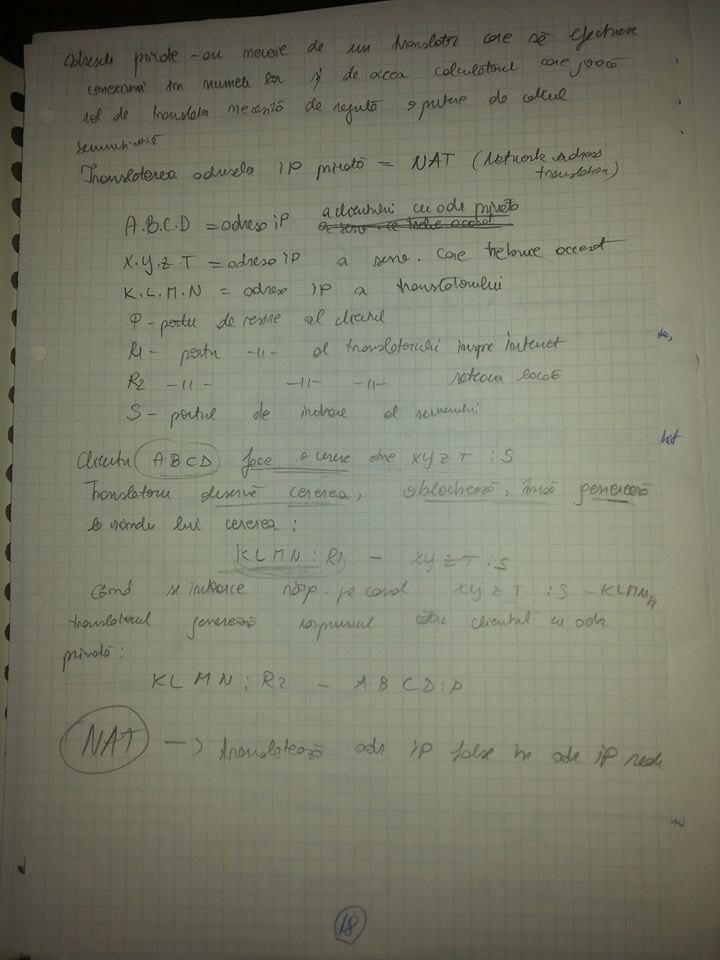 adresele private - au nevoie de un translator care să efectueze
conexiuni în numele lor și de aceea calculatorul care joacă
rol de translator necesită de regulă o putere de calcul
semnificativă
Translatarea adreselor IP private = NAT (Network adress
translation)
A.B.C.D = adresa iP a clientului cu adr privată
X.Y.Z.T = adresa iP a serv. care trebuie accesat
K.L.M.N = adresa IP a translatorului
P - portu de ieșire al clientului
R1 - portu -||- al translatorului înspre internet
R2 -||- -||- -||- rețeaua locală
S - portul de intrare al serverului
Clientu ABCD face o cerere către XYZT:S
Translatoru observă cererea, o blochează, însă generează
la rândul lui cererea:
KLMN:R1 - XYZT:S
Când se întoarce răsp. pe canal XYZT:S - KLMN
translatorul generează răspunsul către clientul cu adr
privată:
KLMN:R2 - ABCD:P
NAT -> translatează adr iP false în adr iP reale
18